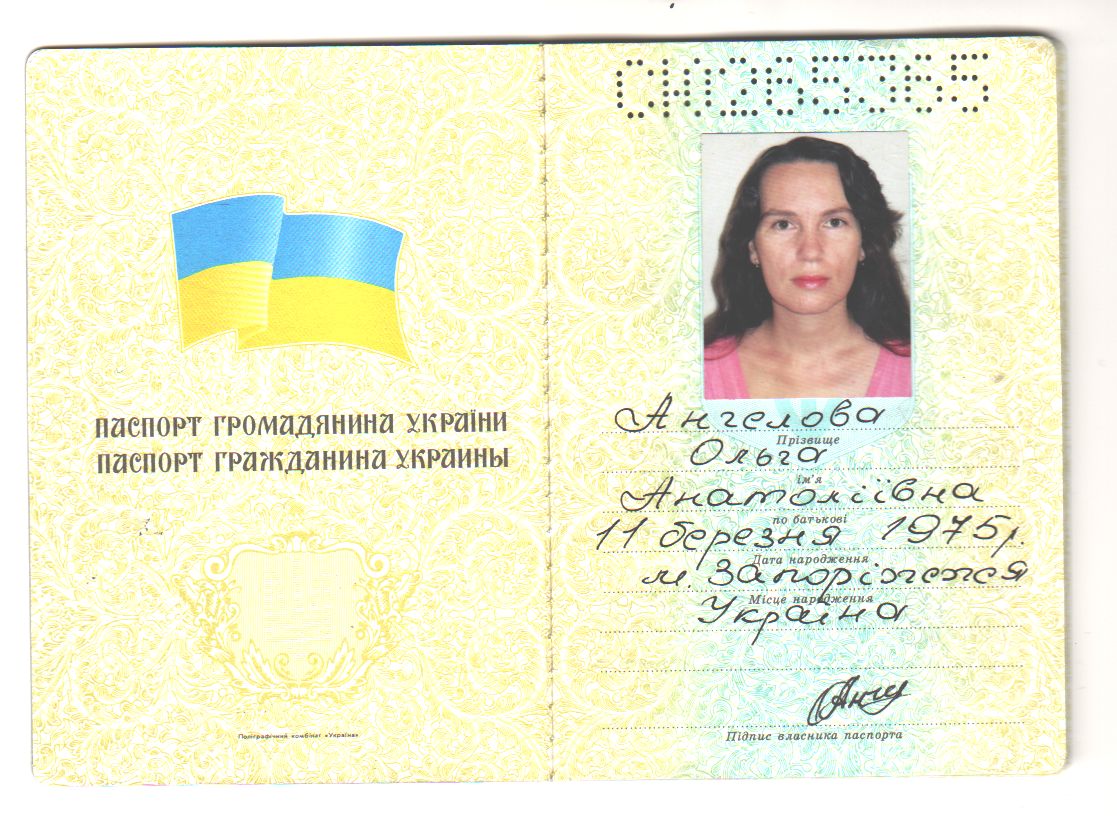 ПАСПОРТ ГРОМАДЯНИНА УКРАЇНИ
ПАСПОРТ ГРАЖДАНИНА УКРАИНЫ
Поліграфічний комбінат «Україна»
СН265365
Ангелова
Прізвище
Ольга
ім'я
Анатоліївна
по батькові
11 березня 1975 р.
Дата народження
м. Запоріжжя
Місце народження
Україна
Підпис власника паспорта